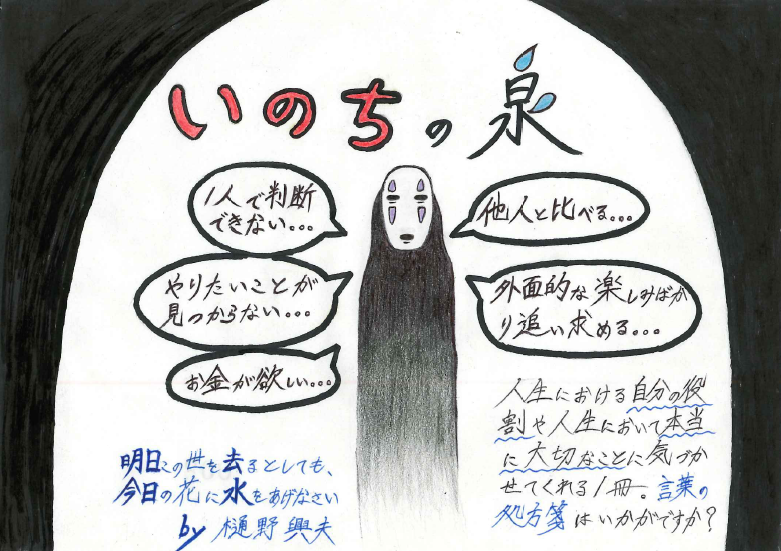 いのちの泉
1人で判断
できない...
他人と比べる...
やりたいことが
見つからない...
外面的な楽しみばか
り追い求める...
お金が欲しい...
人生における自分の役
割や人生において本当
に大切なことに気づか
せてくれる1冊。言葉の
処方箋はいかがですか?
明日この世を去るとしても、
今日の花に水をあげなさい
by 樋野興夫